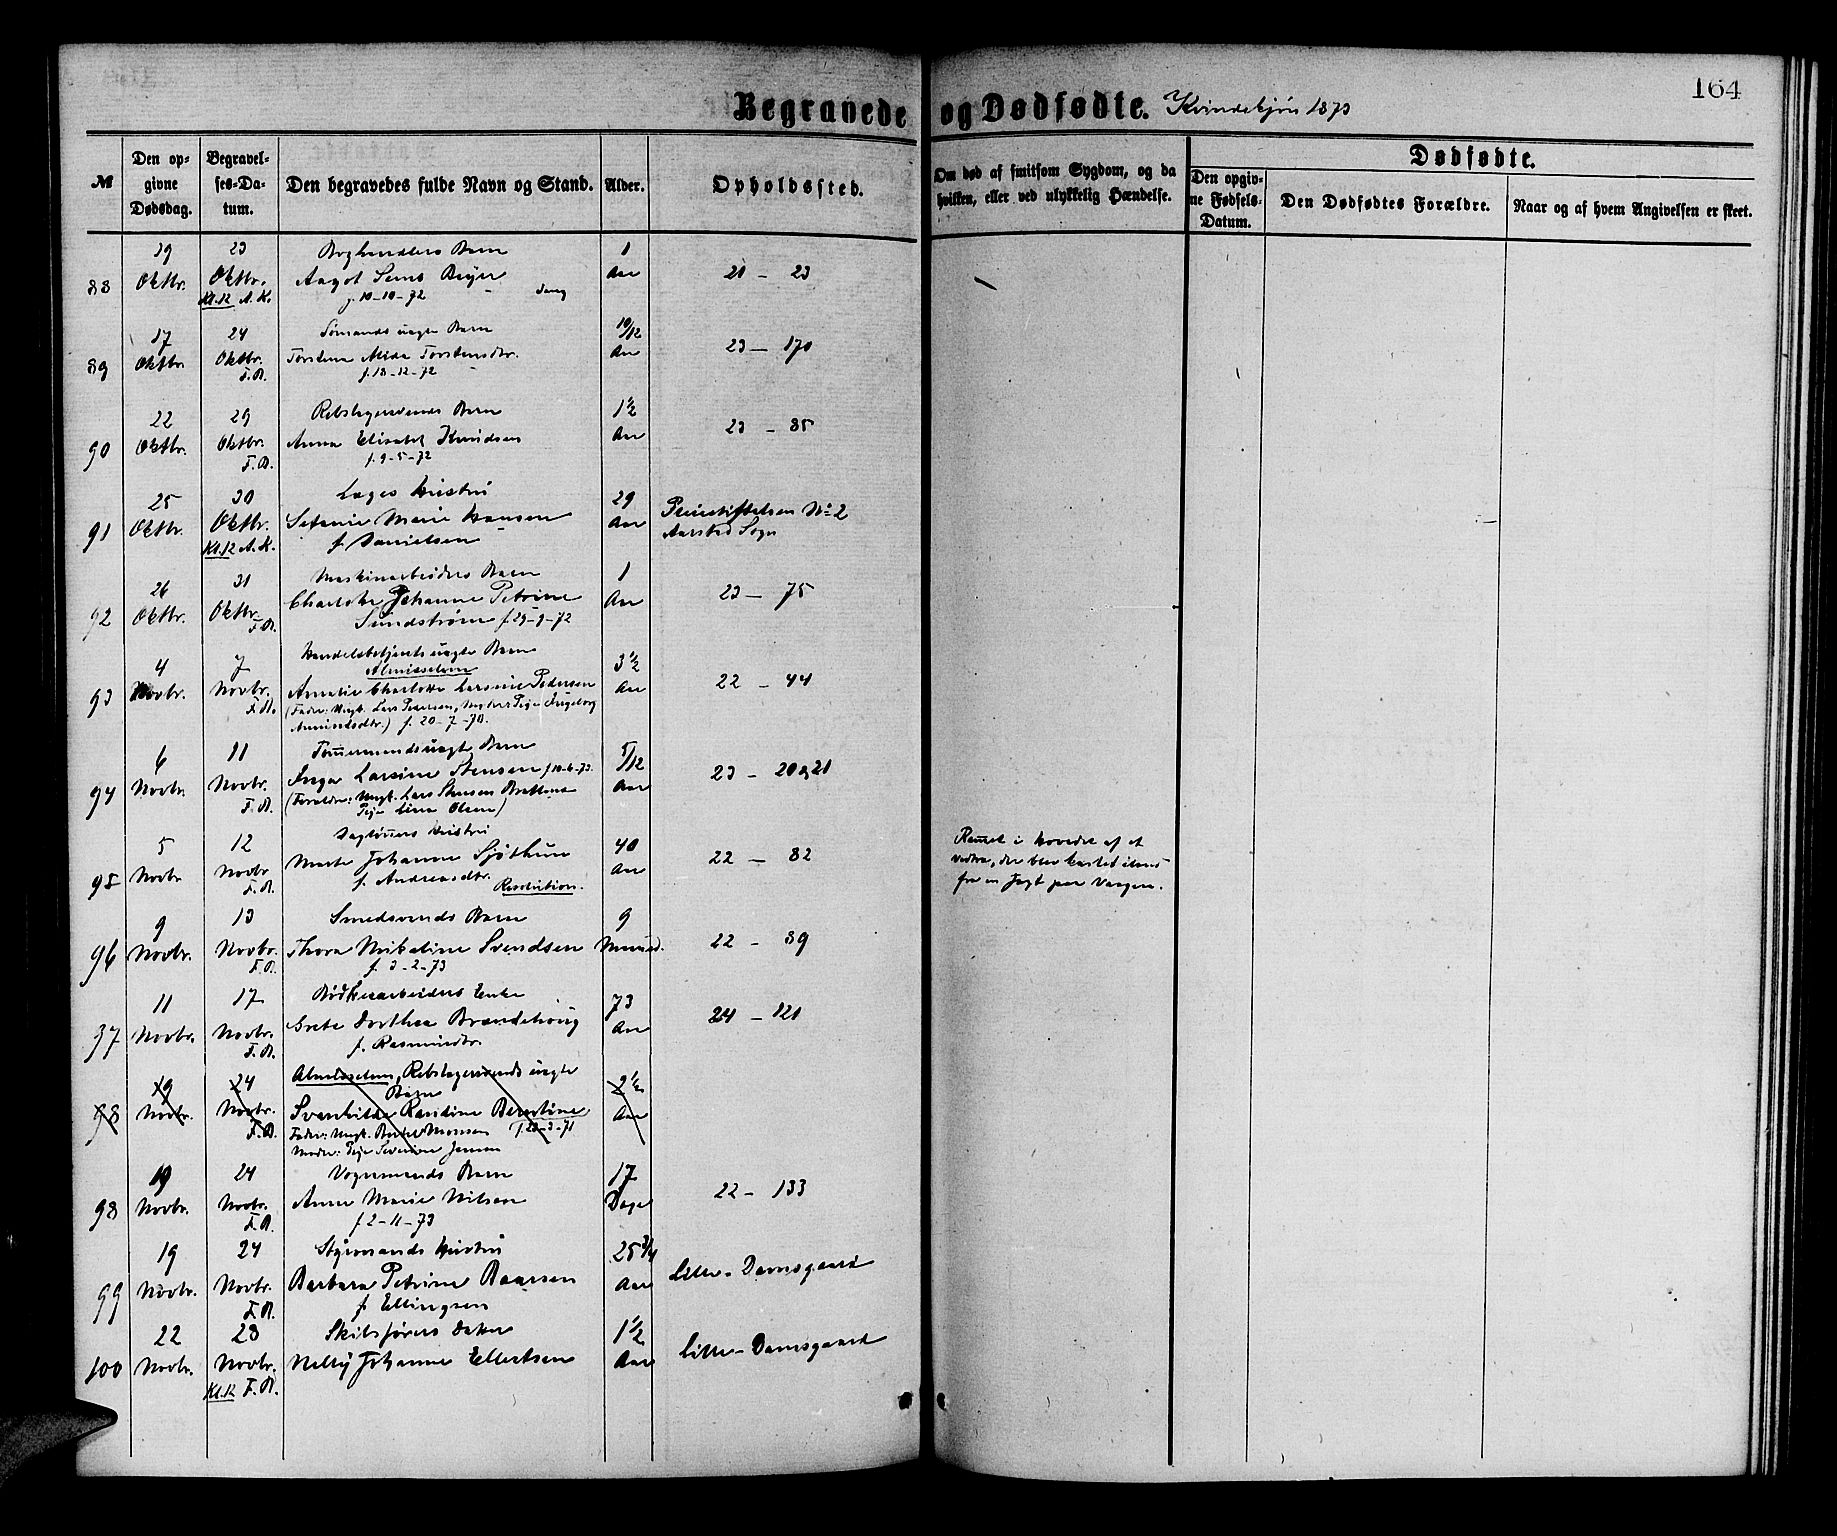 164
Begravede og Dødfødte. Kvindekjøn 1873
№
Den opgivne Dødsdag.
Begravelses-Datum.
Den begravedes fulde Navn og Stand.
Alder.
Opholdssted.
Om død af smitsom Sygdom, og da hvilken, eller ved ulykkelig Hændelse.
Dødfødte.
Den opgivne Fødsels-Datum.
Den Dødfødtes Forældre.
Naar og af hvem Angivelsen er skeet.
19 23 Boghandlers Barn 1
88 Oktbr. Oktbr. Aagot Sems Beyer Aar 21 - 23
Kl.12 A.K. f. 10-10-72
17 24 Sømands uægte Barn 10/12
89 Oktbr. Oktbr. Torstena Torstensdtr. Aar 23 - 170
F.B. f. 18-12-72
22 29 Rebslagersvends Barn 1 1/2
90 Oktbr. Oktbr. Anna Elisabet Knudsen Aar 23 - 85
F.B. f. 9-5-72
25 30 Læges Hustru 29 Pleiestiftelsen No 2
91 Oktbr. Oktbr. Marie Hansen Aar Aarstad Sogn
Kl.12 A.K. f. Danielsen
26 31 Maskinarbeiders Barn 1
92 Oktbr. Oktbr. Charlotte Johanne Petrine Aar 23 - 75
F.B. Sundstrøm f. 29-9-72
4 7 Handelsbetjents uægte Barn 3 1/2
Almisselem
93 Novbr. Novbr. Amalie Charlotte Larsine Pedersen Aar 22 - 44
F.B. (Fader: Ungk. Lars Pedersen, Moder: Pige Ingeborg
Amundsdtr.) f. 20-7-70.
6 11 Tømmermands uægte Barn 5/12
94 Novbr. Novbr. Inga Larsine Stensen f. 10-6-73. Aar 23 - 20 og 21
F.B. (Forældre: Ungk. Lars Stensen
Pige Lina Olsen)
5 12 Dagløners Hustru 40
95 Novbr Novbr Marte Johanne Sjøthun Aar 22 - 82
F.B. f. Andreasdtr. Resolution.
Ramt i Hovedet af et
Vedtræ, der blev kasted iland
fra en Jagt paa Vaagen.
9 13 Smedsvends Barn 9
96 Novbr. Novbr. Thora Mikaline Svendsen Maaned. 22 - 89
F.B. f. 3-2-73
11 17 Bødkerarbeiders Enke 73
97 Novbr. Novbr. Grete Dorthea Brandehoug Aar 24 - 121
F.B. f. Rasmusdtr.
19 24 Almisselem, Rebslagersvends uægte 2 1/2
Barn
98 Novbr. Novbr. Svanhilde Randine Berntine Aar
F.B. Fader: Ungk. Monsen f. 23-3-71
Moder: Pige Severine Jensen
19 24 Vognmands Barn 17
98 Novbr. Novbr. Anna Marie Nilsen Dage 22 - 133
F.B. f. 2-11-73
19 24 Styrmands Hustru 25 3/4
99 Novbr. Novbr. Barbara Petrine Baarsen Aar Lille-Damsgaard
F.B. f. Ellingsen
22 28 Skibsførers Datter 1 1/2
100 Novbr. Novbr. Nelly Johanne Ellertsen Aar Lille-Damsgaard
Kl.12 F.B.